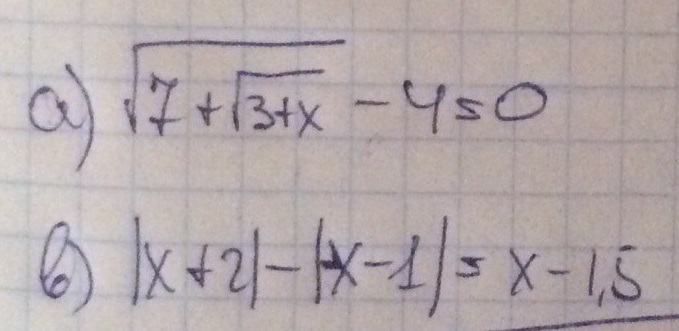 а) √(7+√(3+x)) - 4 = 0
в) |x+2| - |x-1| = x - 1,5